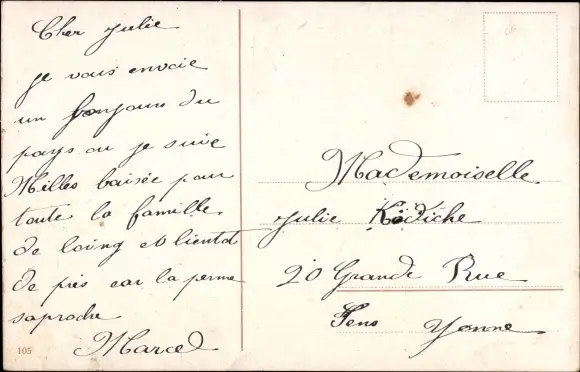 Cher Julie
je vous envoie
un bonjour du
pays ou je suive
Milles baisée pour
toute la famille
de loing et bientot
de près car la perme
saproche
Marcel
105
Mademoiselle
Julie
20 Grande Rue
Sens Yonne